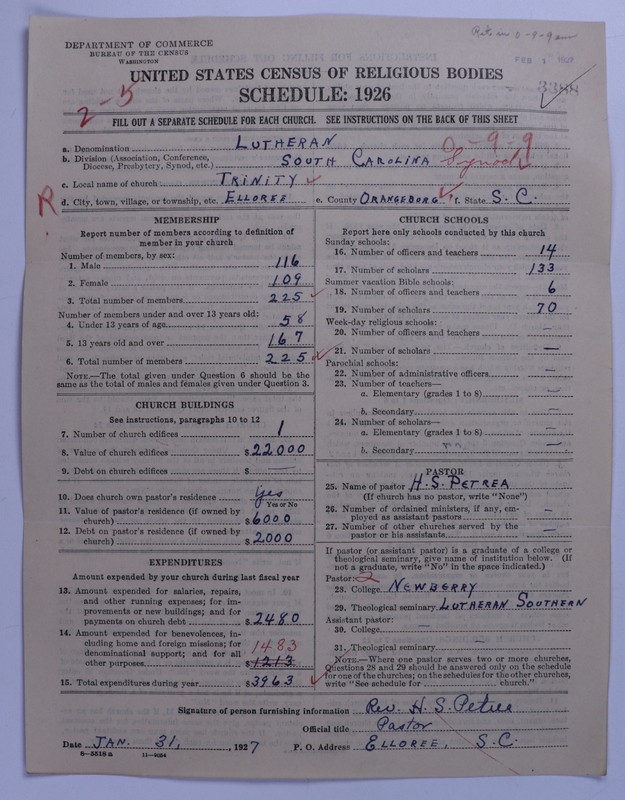 DEPARTMENT OF COMMERCE
BUREAU OF THE CENSUS
WASHINGTON
FEB 1 1927
UNITED STATES CENSUS OF RELIGIOUS BODIES
SCHEDULE: 1926
3388
2-5
FILL OUT A SEPARATE SCHEDULE FOR EACH CHURCH. SEE INSTRUCTIONS ON THE BACK OF THIS SHEET
a. Denomination LUTHERAN 0-9-9
b. Division (Association, Conference, Diocese, Presbytery, Synod, etc.) SOUTH CAROLINA Synod
c. Local name of church TRINITY
R
d. City, town, village, or township, etc. ELLOREE e. County ORANGEBURG f. State S. C.
MEMBERSHIP
Report number of members according to definition of
member in your church
Number of members, by sex:
1. Male 116
2. Female 109
3. Total number of members 225
Number of members under and over 13 years old:
4. Under 13 years of age 58
5. 13 years old and over 167
6. Total number of members 225
NOTE.—The total given under Question 6 should be the
same as the total of males and females given under Question 3.
CHURCH BUILDINGS
See instructions, paragraphs 10 to 12
7. Number of church edifices 1
8. Value of church edifices $22000
9. Debt on church edifices $ —
10. Does church own pastor's residence Yes
Yes or No
11. Value of pastor's residence (if owned by
church) $6000
12. Debt on pastor's residence (if owned by
church) $2000
EXPENDITURES
Amount expended by your church during last fiscal year
13. Amount expended for salaries, repairs,
and other running expenses; for im-
provements or new buildings; and for
payments on church debt $2480
14. Amount expended for benevolences, in-
cluding home and foreign missions; for
denominational support; and for all 1483
other purposes $1213
15. Total expenditures during year $3963
CHURCH SCHOOLS
Report here only schools conducted by this church
Sunday schools:
16. Number of officers and teachers 14
17. Number of scholars 133
Summer vacation Bible schools:
18. Number of officers and teachers 6
19. Number of scholars 70
Week-day religious schools:
20. Number of officers and teachers —
21. Number of scholars —
Parochial schools:
22. Number of administrative officers —
23. Number of teachers—
a. Elementary (grades 1 to 8) —
b. Secondary —
24. Number of scholars—
a. Elementary (grades 1 to 8) —
b. Secondary —
PASTOR
25. Name of pastor H. S. PETREA
(If church has no pastor, write "None")
26. Number of ordained ministers, if any, em-
ployed as assistant pastors —
27. Number of other churches served by the
pastor or his assistants —
If pastor (or assistant pastor) is a graduate of a college or
theological seminary, give name of institution below. (If
not a graduate, write "No" in the space indicated.)
Pastor: 2
28. College NEWBERRY
29. Theological seminary LUTHERAN SOUTHERN
Assistant pastor:
30. College —
31. Theological seminary —
NOTE.—Where one pastor serves two or more churches,
Questions 28 and 29 should be answered only on the schedule
for one of the churches; on the schedules for the other churches,
write "See schedule for church."
Signature of person furnishing information Rev. H. S. Petrea
Official title Pastor
Date JAN. 31, 1927 P. O. Address ELLOREE, S. C.
8—5518 a 11—9024